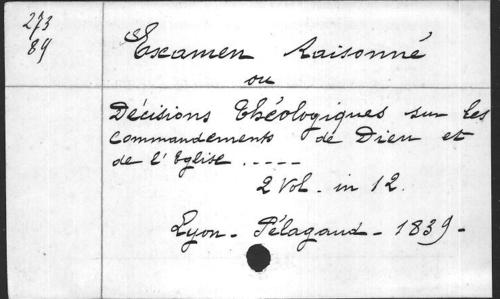 273
89
Examen Raisonné
ou
Décisions théologiques sur les
Commandements de Dieu et
de l'Eglise .....
2 Vol. in 12.
Lyon - Pélagaud - 1839 -